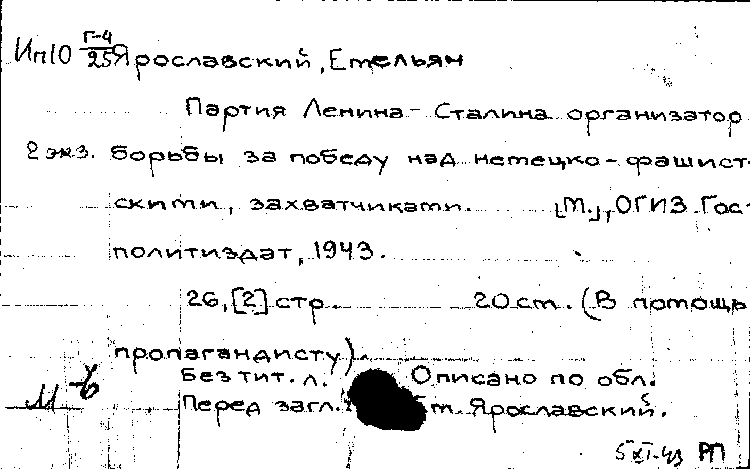 Ип10 Г-4/25 Ярославский, Емельян
Партия Ленина-Сталина организатор
2 экз. борьбы за победу над немецко-фашист-
скими, захватчиками. [М.], ОГИЗ Гос-
политиздат, 1943.
26,[2] стр. 20 ст. (В помощь
пропагандисту).
Без тит. л. Описано по обл.
Перед загл.: Ем. Ярославский.
5 XI-43 РП